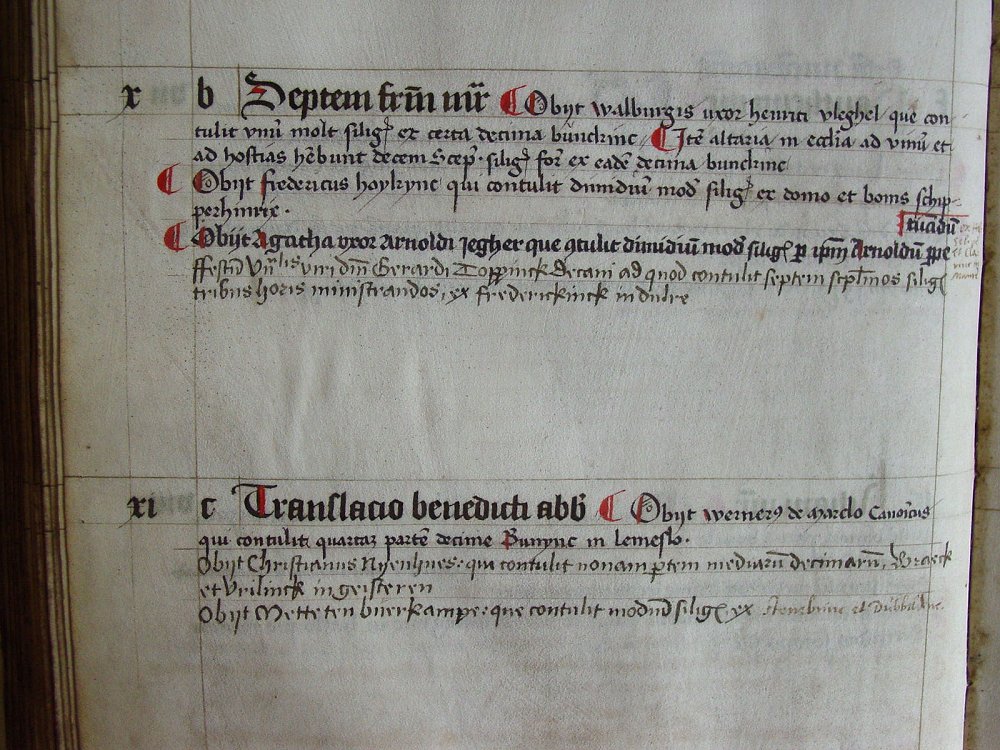 x b Septem frm̄ mr̄ Obijt walburgis uxor henrici vleghel que con
tulit vnū molt silig ex certa decima būnckinc Itē altaria in ecclīa ad vinū et
ad hostias hēbunt decem Scep silig for ex eadē decima bunckinc
Obijt fredericus hoykync qui contulit dimidiū mod silig ex domo et bonis schip
perhinrix .
Obijt Agatha vxor arnoldi Jegher que qtulit dimidiū mod silig p ipm̄ Arnoldū
ffestū viri dm̄ Gerardi Toppinck decani ad quod contulit septem silig
tribus horis ministrandos, ex frederickinck in dulre
xi c Translacio benedicti abb̄ Obijt werner9 de marclo Canoīcus
qui contulit quartaz partē decime Bunync in lemeslo .
Obijt Christianus Nyenhues : qui contulit nonam ptem mediarū decimarū, Braeck
et vrilinck in geisteren
Obijt Mette ten buerkampe : que contulit modiū silig ex